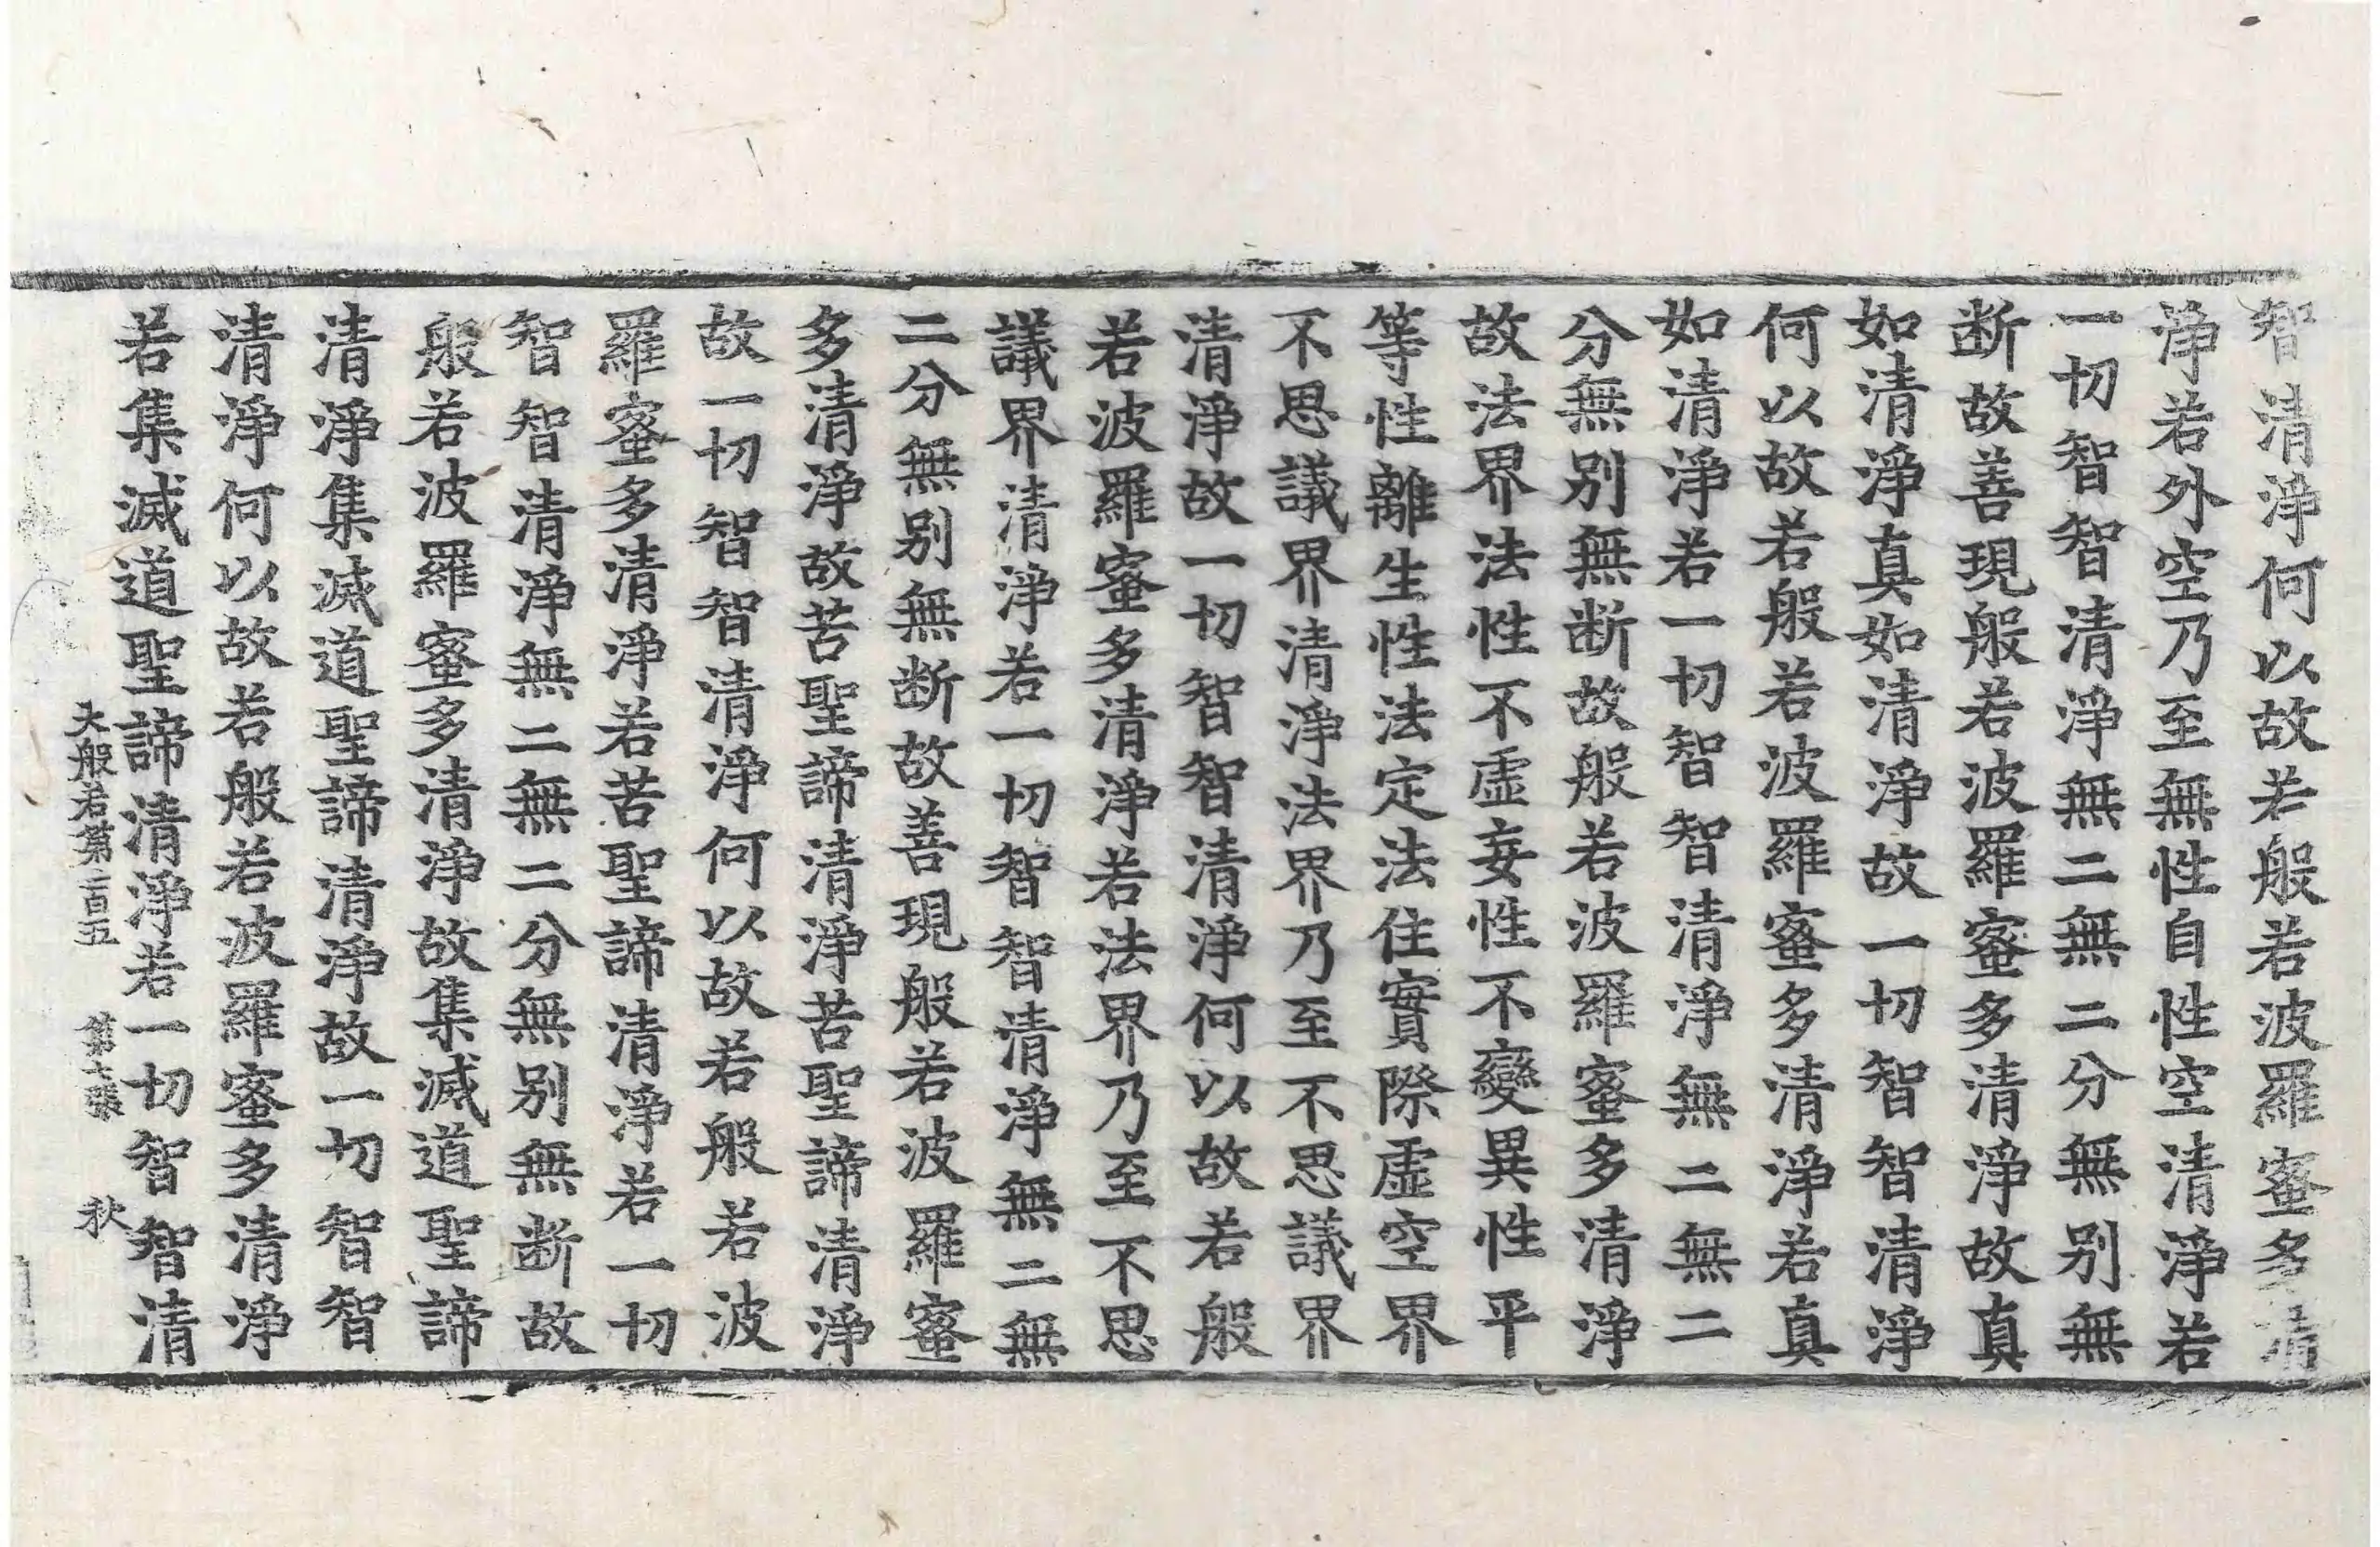 智清淨何以故若般若波羅蜜多清
淨若外空乃至無性自性空清淨若
一切智智清淨無二無二分無別無
断故善現般若波羅蜜多清淨故真
如清淨真如清淨故一切智智清淨
何以故若般若波羅蜜多清淨若真
如清淨若一切智智清淨無二無二
分無別無断故般若波羅蜜多清淨
故法界法性不虛妄性不變異性平
等性離生性法定法住實際虛空界
不思議界清淨法界乃至不思議界
清淨故一切智智清淨何以故若般
若波羅蜜多清淨若法界乃至不思
議界清淨若一切智智清淨無二無
二分無別無断故善現般若波羅蜜
多清淨故苦聖諦清淨苦聖諦清淨
故一切智智清淨何以故若般若波
羅蜜多清淨若苦聖諦清淨若一切
智智清淨無二無二分無別無断故
般若波羅蜜多清淨故集滅道聖諦
清淨集滅道聖諦清淨故一切智智
清淨何以故若般若波羅蜜多清淨
若集滅道聖諦清淨若一切智智清
大般若第二百五 第七張 秋